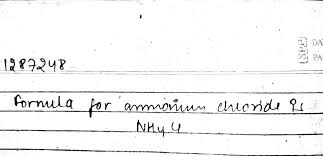 1287248
DA
PA
Formula for ammonium chloride is
NH4Cl